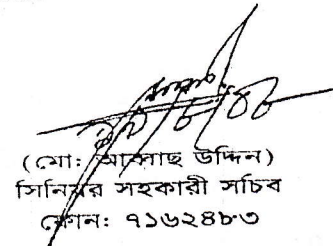 (মো: আক্কাছ উদ্দিন)
সিনিয়র সহকারী সচিব
ফোন: ৭১৬২৪৮৩